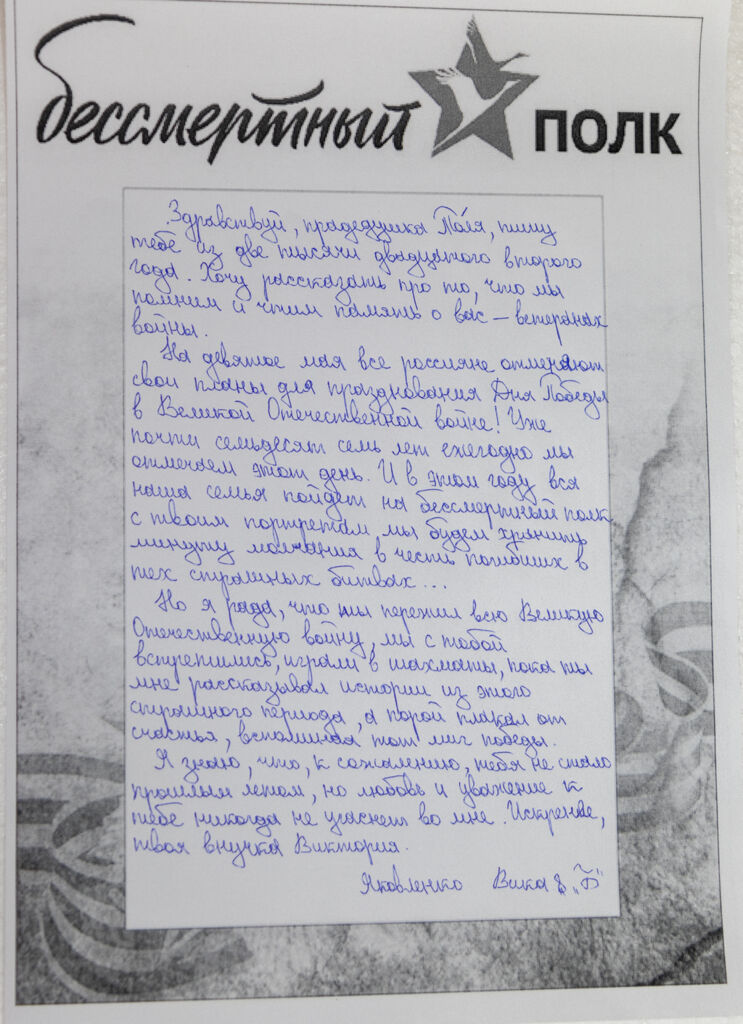 бессмертный ПОЛК
Здравствуй, прадедушка Толя, пишу
тебе из две тысячи двадцатого второго
года. Хочу рассказать про то, что мы
помним и чтим память о вас – ветеранах
войны.
На девятое мая все россияне отмечают
свои планы для празднования Дня Победы
в Великой Отечественной войне! Уже
почти семьдесят семь лет ежегодно мы
отмечаем этот день. И в этом году вся
наша семья пойдет на бессмертный полк
с твоим портретом, мы будем хранить
минуту молчания в честь погибших в
тех страшных битвах...
Но я рада, что ты пережил всю Великую
Отечественную войну, мы с тобой
встретились, играли в шахматы, пока ты
мне рассказывал истории из этого
страшного периода, а порой плакал от
счастья, вспоминая тот миг победы.
Я знаю, что, к сожалению, тебя не стало
прошлым летом, но любовь и уважение к
тебе никогда не угаснет во мне. Искренне,
твоя внучка Виктория.
Яковленко Вика "Б"